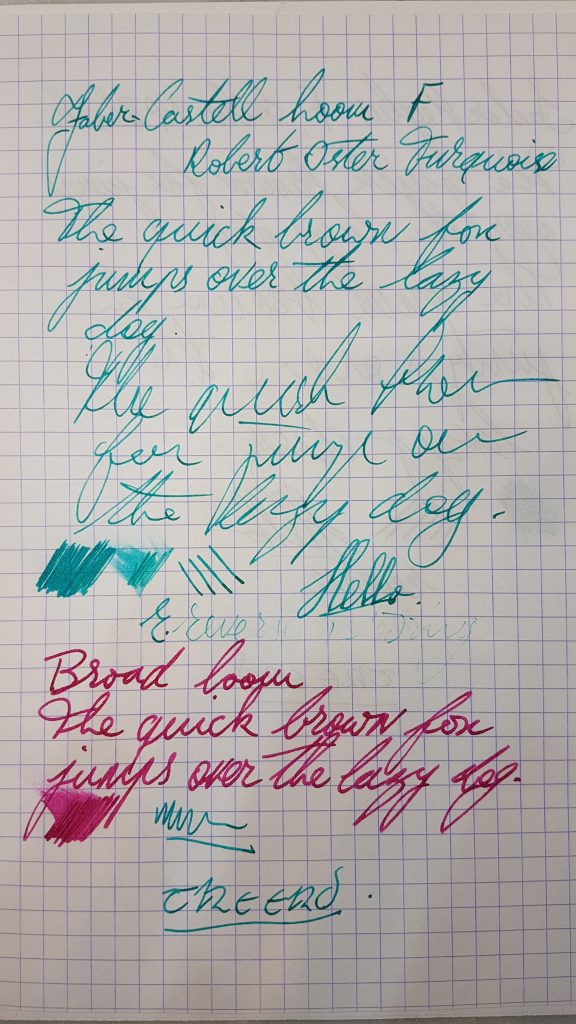 Faber-Castell loom F
Robert Oster Turquoise
The quick brown fox
jumps over the lazy
dog.
The quick
fox jumps over
the lazy dog.
Hello.
Broad loom
The quick brown fox
jumps over the lazy dog.
CHEERS.